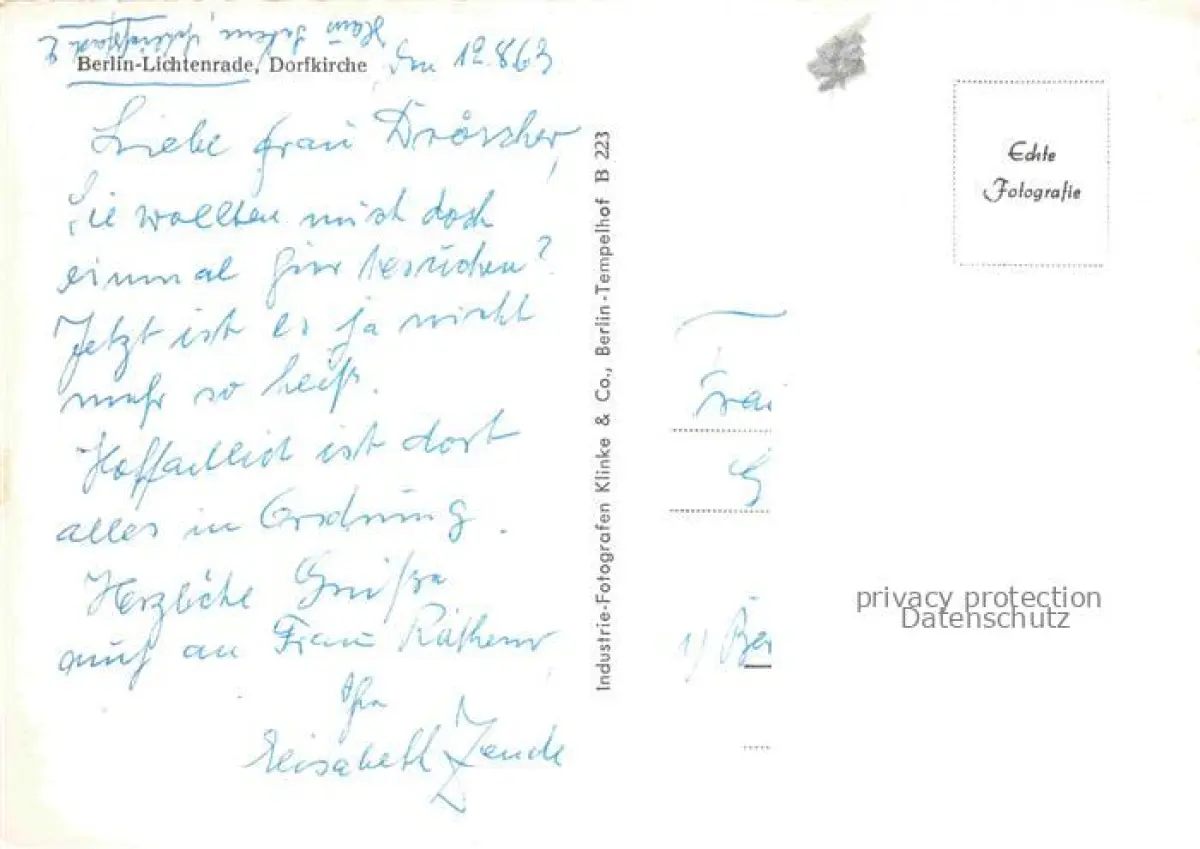 Berlin-Lichtenrade, Dorfkirche
den 12.8.63
Liebe Frau Dröscher,
Sie wollten mich doch
einmal hier besuchen?
Jetzt ist es ja nicht
mehr so heiß.
Hoffentlich ist dort
alles in Ordnung.
Herzliche Grüße
auch an Frau
Ihre
Elisabeth
Industrie-Fotografen Klinke & Co., Berlin-Tempelhof B 223
Echte
Fotografie
privacy protection
Datenschutz